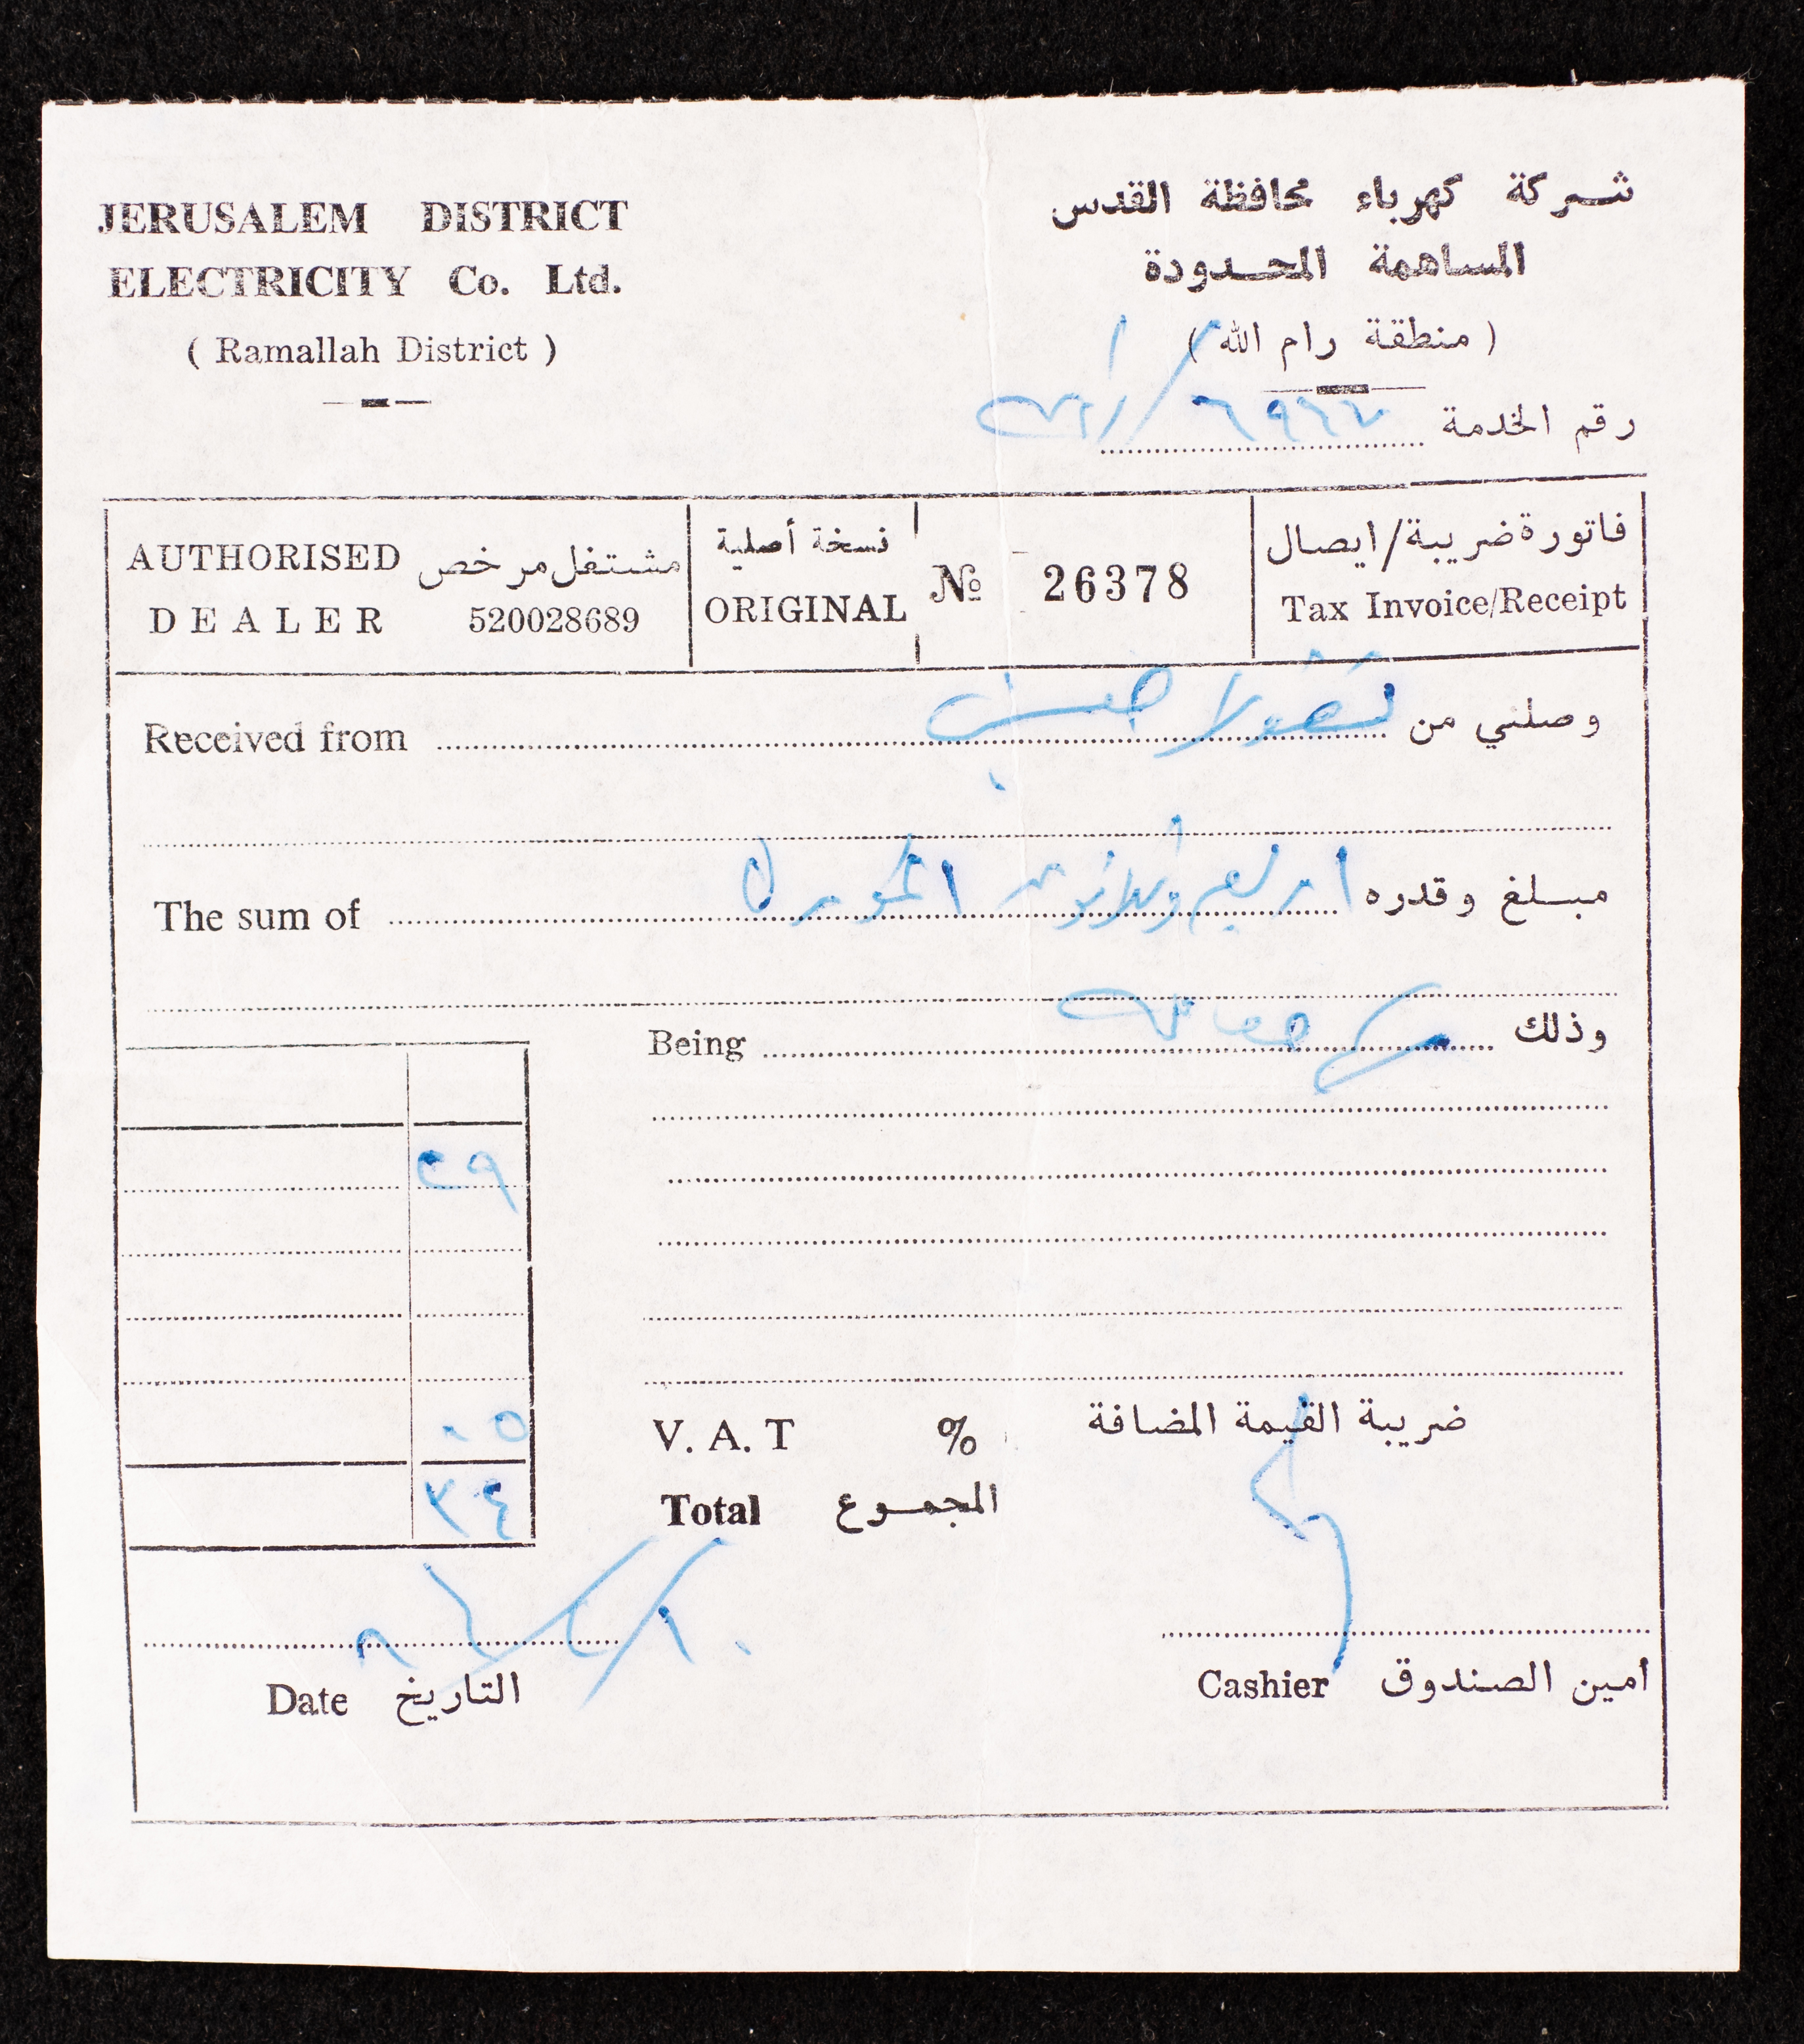 JERUSALEM DISTRICT
ELECTRICITY Co. Ltd.
( Ramallah District )
شركة كهرباء محافظة القدس
المساهمة المحدودة
( منطقة رام الله )
رقم الخدمة
AUTHORISED مشتغل مرخص
DEALER 520028689
نسخة أصلية
ORIGINAL
№ 26378
فاتورة ضريبة/ايصال
Tax Invoice/Receipt
Received from نقولا وصلني من
The sum of مبلغ وقدره
Being وذلك
٢٩
V. A. T % ضريبة القيمة المضافة
٠٥
Total المجموع
٣٤
Date التاريخ
Cashier أمين الصندوق